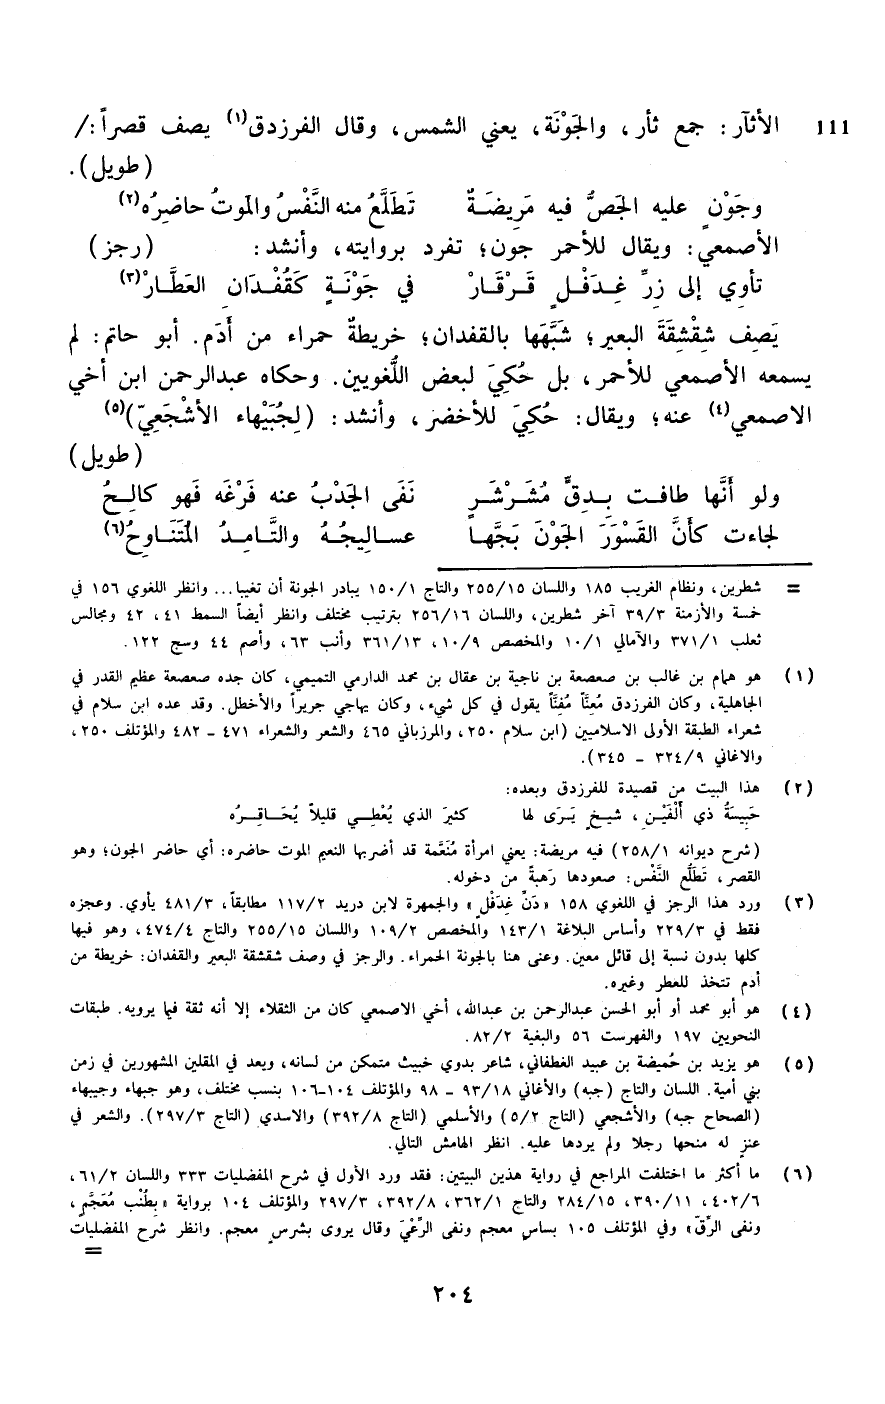 111 الأثآر: جمع ثأر، والجَوْنَة، يعني الشمس، وقال الفرزدق(١) يصف قصراً:/
(طويل).
وجَوْنٍ عليه الجَصُّ فيه مَرِيضَةٌ تَطَلَّعُ منه النَّفْسُ والموتُ حاضِرُه(٢)
الأصمعي: ويقال للأحمر جون؛ تفرد بروايته، وأنشد: (رجز)
تأوي إلى زِرِّ غِدَفْلٍ قَرْقَارْ في جَوْنَةٍ كَقُفْدَانِ العَطَّارْ(٣)
يَصِف شِقْشِقَةَ البعير؛ شَبَّهَها بالقفدان؛ خريطةٌ حمراء من أَدَم. أبو حاتم: لم
يسمعه الأصمعي للأحمر، بل حُكِيَ لبعض اللُّغويين. وحكاه عبدالرحمن ابن أخي
الاصمعي(٤) عنه؛ ويقال: حُكِيَ للأخضر، وأنشد: (لِجُبَيْهاء الأشْجَعِيّ)(٥)
(طويل)
ولو أنَّها طافت بِدِقٍّ مُشَرْشَرٍ نَفَى الجَدْبُ عنه فَرْغَه فهو كالِحُ
لجاءت كأنَّ القَسْوَرَ الجَوْنَ بَجَّها عساليجُهُ والثَّامِدُ المُتَنَاوِحُ(٦)
= شطرين، ونظام الغريب ١٨٥ واللسان ٢٥٥/١٥ والتاج ١٥٠/١ يبادر الجونة أن تغيبا... وانظر اللغوي ١٥٦ في
خمسة والأزمنة ٣٩/٣ آخر شطرين، واللسان ٢٥٦/١٦ بترتيب مختلف وانظر أيضاً السمط ٤١، ٤٢ ومجالس
ثعلب ٣٧١/١ والآمالي ١٠/١ والمخصص ١٠/٩، ٣٦١/١٣ وأنب ٦٣، وأصم ٤٤ وسج ١٢٢.
(١) هو همام بن غالب بن صعصعة بن ناجية بن عقال بن محمد الدارمي التميمي، كان جده صعصعة عظيم القدر في
الجاهلية، وكان الفرزدق مُعِنّاً مُفِنّاً يقول في كل شيء، وكان يهاجي جريراً والأخطل. وقد عده ابن سلام في
شعراء الطبقة الأولى الاسلاميين (ابن سلام ٢٥٠، والمرزباني ٤٦٥ والشعر والشعراء ٤٧١ - ٤٨٢ والمؤتلف ٢٥٠،
والاغاني ٣٢٤/٩ - ٣٤٥).
(٢) هذا البيت من قصيدة للفرزدق وبعده:
حَبِيسَةُ ذي أَلْفَيْنِ، شيخٍ يَرَى لها كثيرَ الذي يُعْطِي قليلاً يُحَاقِرُه
(شرح ديوانه ٢٥٨/١) فيه مريضة: يعني امرأة مُنَعَّمة قد أضربها النعيم الموت حاضره: أي حاضر الجون؛ وهو
القصر، تَطَلُّع النَّفْس: صعودها رَهبةً من دخوله.
(٣) ورد هذا الرجز في اللغوي ١٥٨ «دَنٍّ غِدَفْلٍ» والجمهرة لابن دريد ١١٧/٢ مطابقاً، ٤٨١/٣ يأوي. وعجزه
فقط في ٢٢٩/٣ وأساس البلاغة ١٤٣/١ والمخصص ١٠٩/٢ واللسان ٢٥٥/١٥ والتاج ٤٧٤/٤، وهو فيها
كلها بدون نسبة إلى قائل معين. وعنى هنا بالجونة الحمراء. والرجز في وصف شقشقة البعير والقفدان: خريطة من
أدم تتخذ للعطر وغيره.
(٤) هو أبو محمد أو أبو الحسن عبدالرحمن بن عبدالله، أخي الاصمعي كان من الثقلاء إلا أنه ثقة فيما يرويه. طبقات
النحويين ١٩٧ والفهرست ٥٦ والبغية ٨٢/٢.
(٥) هو يزيد بن حُميضة بن عبيد الغطفاني، شاعر بدوي خبيث متمكن من لسانه، ويعد في المقلين المشهورين في زمن
بني أمية. اللسان والتاج (جبه) والأغاني ٩٣/١٨ - ٩٨ والمؤتلف ١٠٤-١٠٦ بنسب مختلف، وهو جبهاء وجيبهاء
(الصحاح جبه) والأشجعي (التاج ٥/٢) والأسلمي (التاج ٣٩٢/٨) والاسدي (التاج ٢٩٧/٣). والشعر في
عنز له منحها رجلا ولم يردها عليه. انظر الهامش التالي.
(٦) ما أكثر ما اختلفت المراجع في رواية هذين البيتين: فقد ورد الأول في شرح المفضليات ٣٣٣ واللسان ٦١/٢،
٤٠٢/٦، ٣٩٠/١١، ٢٨٤/١٥ والتاج ٣٦٢/١، ٣٩٢/٨، ٢٩٧/٣ والمؤتلف ١٠٤ برواية «بِطُنْبٍ مُعَجَّمٍ،
ونفى الرِّقّ» وفي المؤتلف ١٠٥ بساسٍ معجم ونفى الرِّعْيَ وقال يروى بشرسٍ معجم. وانظر شرح المفضليات
=
٢٠٤